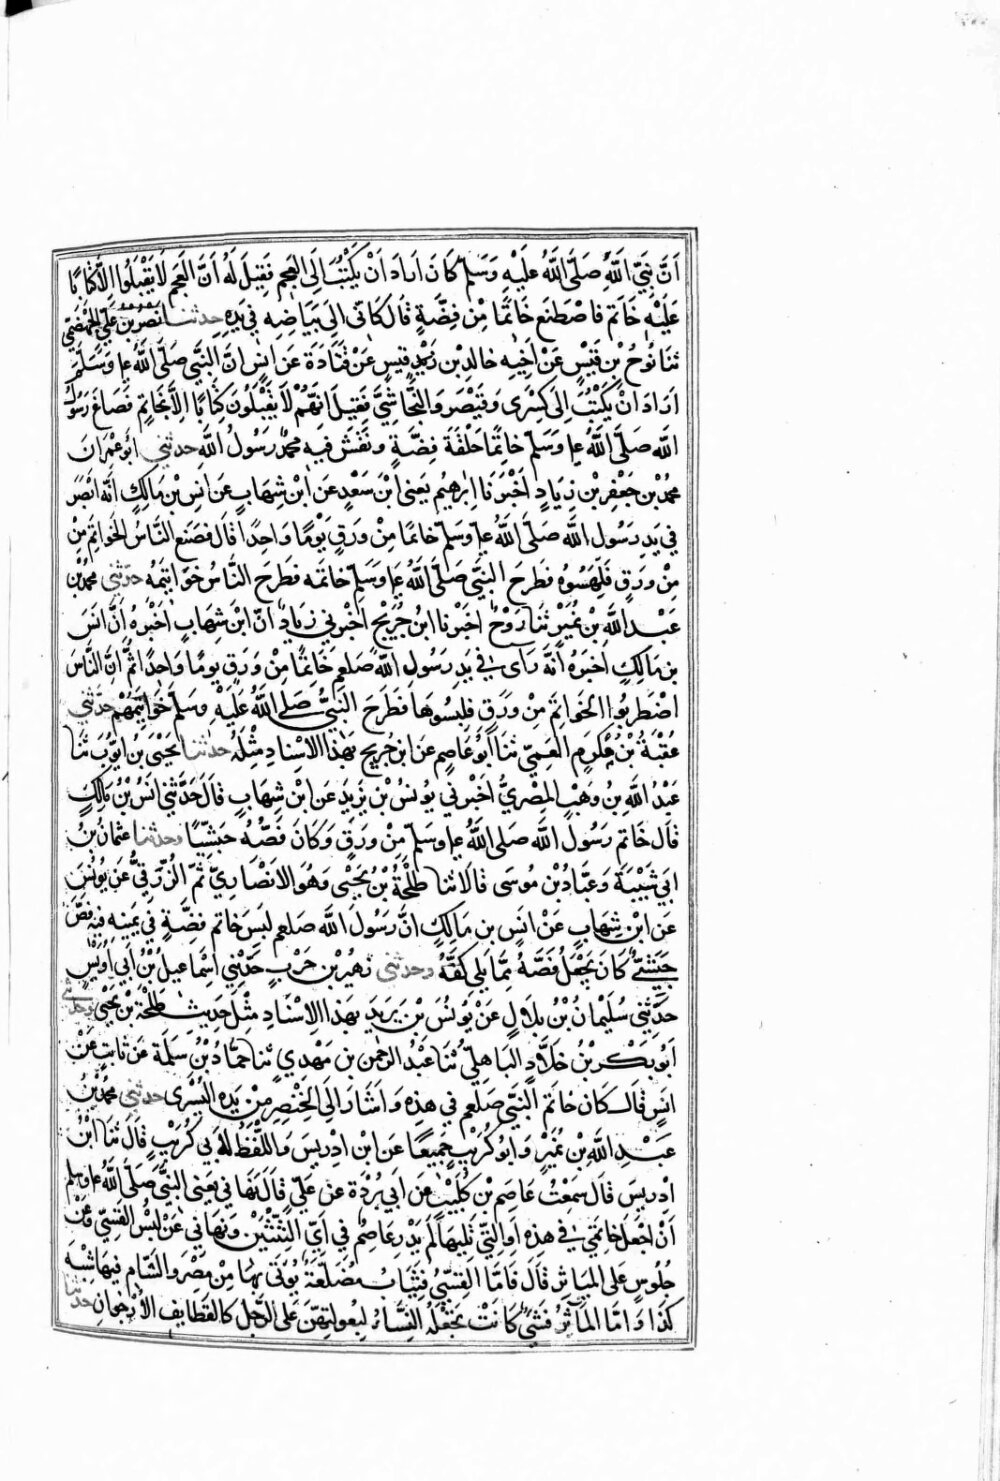 اَنَّ نَبِيَّ اللَّهِ صَلَّى اللَّهُ عَلَيْهِ وَسَلَّمَ كَانَ اَرَادَ اَنْ يَكْتُبَ اِلَى الْعَجَمِ فَقِيلَ لَهُ اَنَّ الْعَجَمَ لَا يَقْبَلُوا اِلَّا كِتَابًا
عَلَيْهِ خَاتَم فَاصْطَنَعَ خَاتَمًا مِنْ فِضَّةٍ قَالَ كَاَنِّى اِلَى بَيَاضِهِ فِي يَدِهِ حدثنا نَصْرُ بْنُ عَلِيٍّ الْجَهْضَمِيّ
ثَنَا نُوحُ بْنُ قَيْسٍ عَنْ اَخِيهِ خَالِدِ بْنِ قَيْسٍ عَنْ قَتَادَةَ عَنْ اَنَسٍ اَنَّ النَّبِيَّ صَلَّى اللَّهُ ع وَسَلَّمَ
اَرَادَ اَنْ يَكْتُبَ اِلَى كِسْرَى وَقَيْصَرَ وَالنَّجَاشِيِّ فَقِيلَ اَنَّهُمْ لَا يَقْبَلُونَ كِتَابًا اِلَّا بِخَاتِمٍ فَصَاغَ رَسُولُ
اللَّهِ صَلَّى اللَّهُ ع وَسَلَّمَ خَاتِمًا حَلْقَةَ فِضَّةٍ وَنَقَشَ فِيهِ مُحَمَّدٌ رَسُولُ اللَّهِ حدثني اَبُو عِمْرَانَ
مُحَمَّدُ بْنُ جَعْفَرِ بْنِ زِيَادٍ اَخْبَرَنَا اِبْرَاهِيمُ يَعْنِى ابْنَ سَعْدٍ عَنِ ابْنِ شِهَابٍ عَنْ اَنَسِ بْنِ مَالِكٍ اَنَّهُ اَبْصَرَ
فِي يَدِ رَسُولِ اللَّهِ صَلَّى اللَّهُ ع وَسَلَّمَ خَاتَمًا مِنْ وَرَقٍ يَوْمًا وَاحِدًا قَالَ فَصَنَعَ النَّاسُ الْخَوَاتِمَ مِنْ
مِنْ وَرَقٍ فَلَبِسُوهُ فَطَرَحَ النَّبِيُّ صَلَّى اللَّهُ ع وَسَلَّمَ خَاتَمَهُ فَطَرَحَ النَّاسُ خَوَاتِيمَهُ حدثني مُحَمَّدُ بْنُ
عَبْدِ اللَّهِ بْنِ نُمَيْرٍ ثَنَا رَوْحٌ اَخْبَرَنَا ابْنُ جُرَيْجٍ اَخْبَرَنِي زِيَادٌ اَنَّ ابْنَ شِهَابٍ اَخْبَرَهُ اَنَّ اَنَسَ
بْنَ مَالِكٍ اَخْبَرَهُ اَنَّهُ رَاَى فِي يَدِ رَسُولِ اللَّهِ صَلعم خَاتِمًا مِنْ وَرَقٍ يَوْمًا وَاحِدًا ثُمَّ اِنَّ النَّاسَ
اضْطَرَبُوا الْخَوَاتِمَ مِنْ وَرَقٍ فَلَبِسُوهَا فَطَرَحَ النَّبِيُّ صَلَّى اللَّهُ عَلَيْهِ وَسَلَّمَ خَوَاتِمَهُمْ حدثني
عُقْبَةُ بْنُ مُكْرَمٍ الْعَمِّيّ ثَنَا اَبُو عَاصِمٍ عَنِ ابْنِ جُرَيْجٍ بِهَذَا الْاِسْنَادِ مِثْلَهُ حدثنا يَحْيَى بْنُ اَيُّوبَ ثَنَا
عَبْدُ اللَّهِ بْنُ وَهْبٍ الْمِصْرِيُّ اَخْبَرَنِي يُونُسُ بْنُ يَزِيدَ عَنِ ابْنِ شِهَابٍ قَالَ حَدَّثَنِي اَنَسُ بْنُ مَالِكٍ
قَالَ خَاتَم رَسُولِ اللَّهِ صَلَى اللَّهُ ع وَسَلَّمَ مِنْ وَرَقٍ وَكَانَ فَصُّهُ حَبَشِيًّا وحدثنا عُثْمَانُ بْنُ
اَبِي شَيْبَةَ وَعَبَّادُ بْنُ مُوسَى قَالَا ثَنَا طَلْحَةُ بْنُ يَحْيَى وَهُوَ الْاَنْصَارِيُّ ثُمَّ الزُّرَقِيُّ عَنْ يُونُسَ
عَنِ ابْنِ شِهَابٍ عَنْ اَنَسِ بْنِ مَالِكٍ اَنَّ رَسُولَ اللَّهِ صَلعم لَبِسَ خَاتَمَ فِضَّةٍ فِي يَمِينِهِ فِيهِ فَصٌّ
حَبَشِيٌّ كَانَ يَجْعَلُ فَصَّهُ مِمَّا يَلِي كَفَّهُ وحدثني زُهَيْرُ بْنُ حَرْبٍ حَدَّثَنِي اِسْمَاعِيلُ بْنُ اَبِي اُوَيْسٍ
حَدَّثَنِي سُلَيْمَانُ بْنُ بِلَالٍ عَنْ يُونُسَ بْنِ يَزِيدَ بِهَذَا الْاِسْنَادِ مِثْلَ حَدِيثِ طَلْحَةَ بْنِ يَحْيَى وحدثني
اَبُو بَكْرِ بْنُ خَلَّادٍ الْبَاهِلِيُّ ثَنَا عَبْدُ الرَّحْمَنِ بْنُ مَهْدِيٍّ ثَنَا حَمَّادُ بْنُ سَلَمَةَ عَنْ ثَابِتٍ عَنْ
اَنَسٍ قَالَ كَانَ خَاتَمُ النَّبِيِّ صَلعم فِي هَذِهِ وَاَشَارَ اِلَى الْخِنْصِرِ مِنْ يَدِهِ الْيُسْرَى حدثني مُحَمَّدُ بْنُ
عَبْدِ اللَّهِ بْنِ نُمَيْرٍ وَاَبُو كُرَيْبٍ جَمِيعًا عَنِ ابْنِ اِدْرِيسَ وَاللَّفْظُ لِاَبِي كُرَيْبٍ قَالَ ثَنَا ابْنُ
اِدْرِيسَ قَالَ سَمِعْتُ عَاصِمَ بْنَ كُلَيْبٍ عَنْ اَبِي بُرْدَةَ عَنْ عَلِيٍّ قَالَ نَهَانِي يَعْنِي النَّبِيَّ صَلَّى اللَّهُ ع وَسَلم
اَنْ اَجْعَلَ خَاتَمِي فِي هَذِهِ اَوِ الَّتِي تَلِيهَا لَمْ يَدْرِ عَاصِمٌ فِي اَيِّ الثِّنْتَيْنِ وَنَهَانِي عَنْ لُبْسِ الْقَسِّيِّ وَعَنْ
جُلُوسٍ عَلَى الْمَيَاثِرِ قَالَ فَاَمَّا الْقَسِّيُّ فَثِيَابٌ مُضَلَّعَةٌ يُؤْتَى بِهَا مِنْ مِصْرَ وَالشَّامِ فِيهَا شِبْهُ
كَذَا وَاَمَّا الْمَيَاثِرُ فَشَيْءٌ كَانَتْ تَجْعَلُهُ النِّسَاءُ لِبُعُولَتِهِنَّ عَلَى الرَّحْلِ كَالْقَطَايِفِ الْاُرْجُوَانِ حدثنا